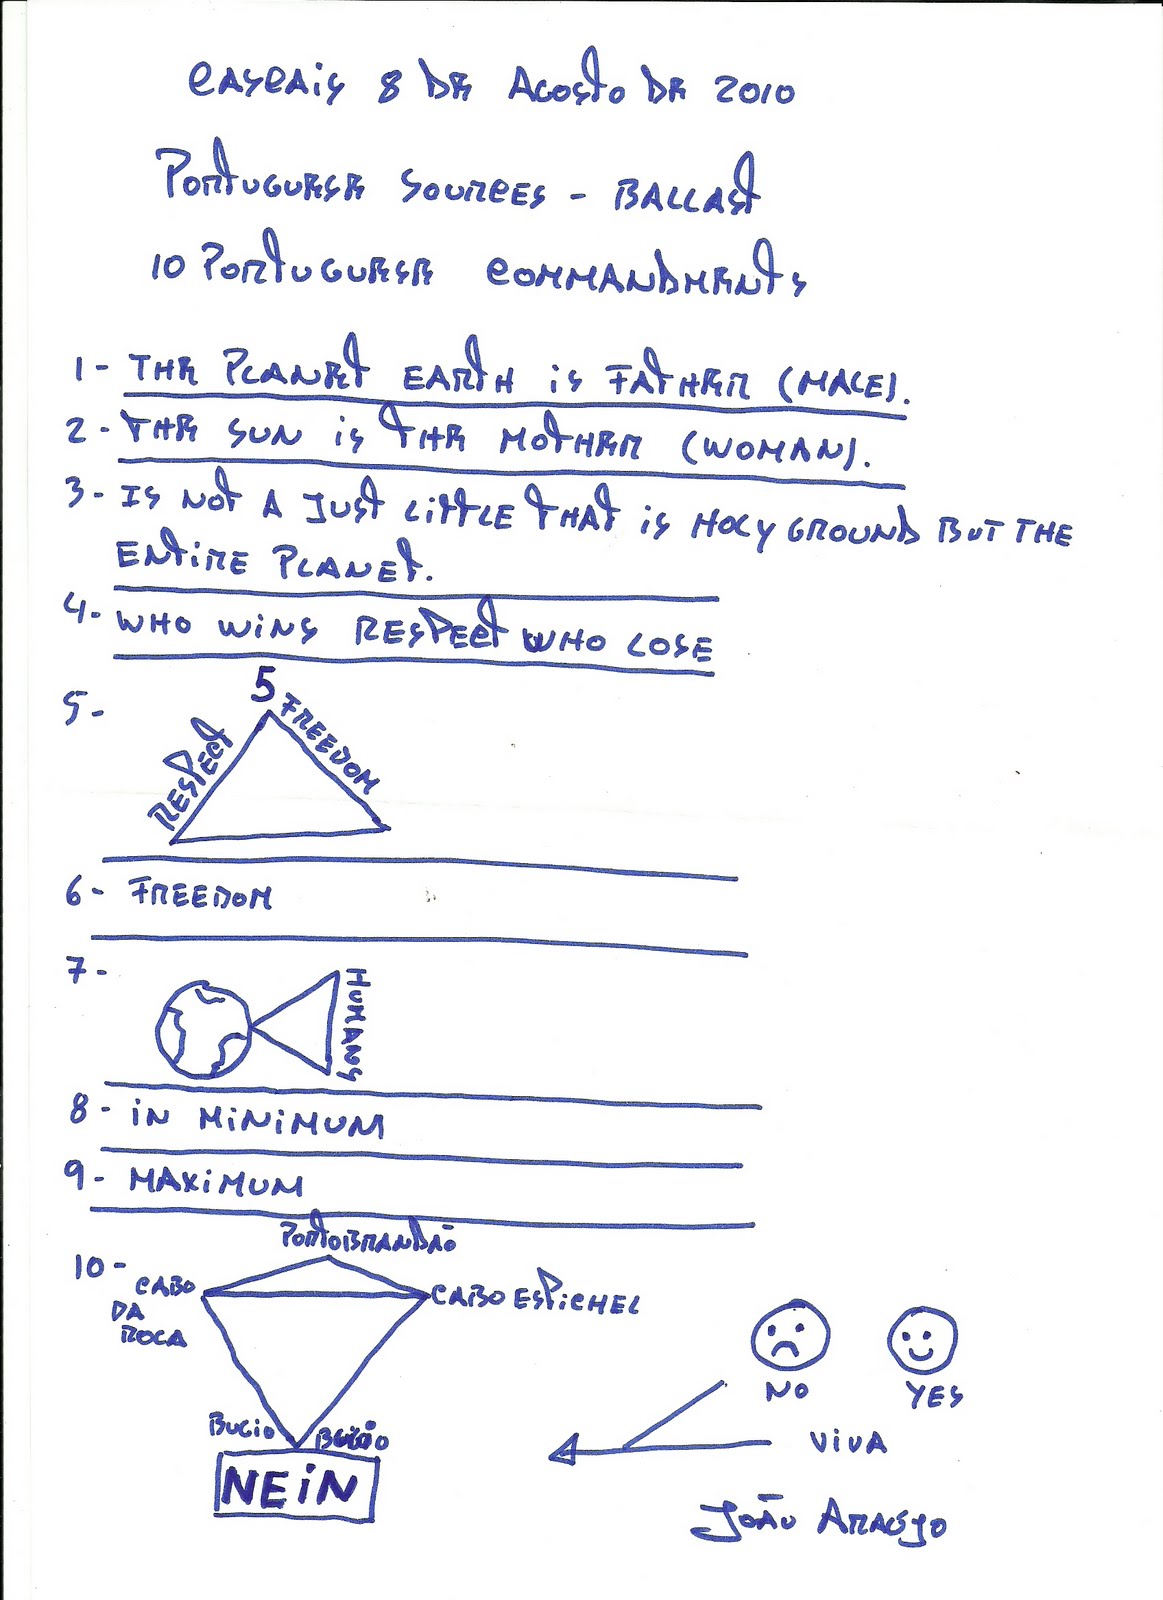 CASCAIS 8 DE AGOSTO DE 2010
PORTUGUESE SOURCES - BALLAST
10 PORTUGUESE COMMANDMENTS
1- THE PLANET EARTH is FATHER (MALE).
2- THE SUN is THE MOTHER (WOMAN).
3- IS NOT A JUST LITTLE THAT is HOLY GROUND BUT THE
ENTIRE PLANET.
4- WHO WINS RESPECT WHO LOSE
5-
5
RESPECT
FREEDOM
6- FREEDOM
7-
HUMANS
8- IN MINIMUM
9- MAXIMUM
10-
PORTOBRANDÃO
CABO
DA
ROCA
CABO ESPICHEL
BUGIO
NEIN
NO
YES
VIVA
JOÃO ARAÚJO